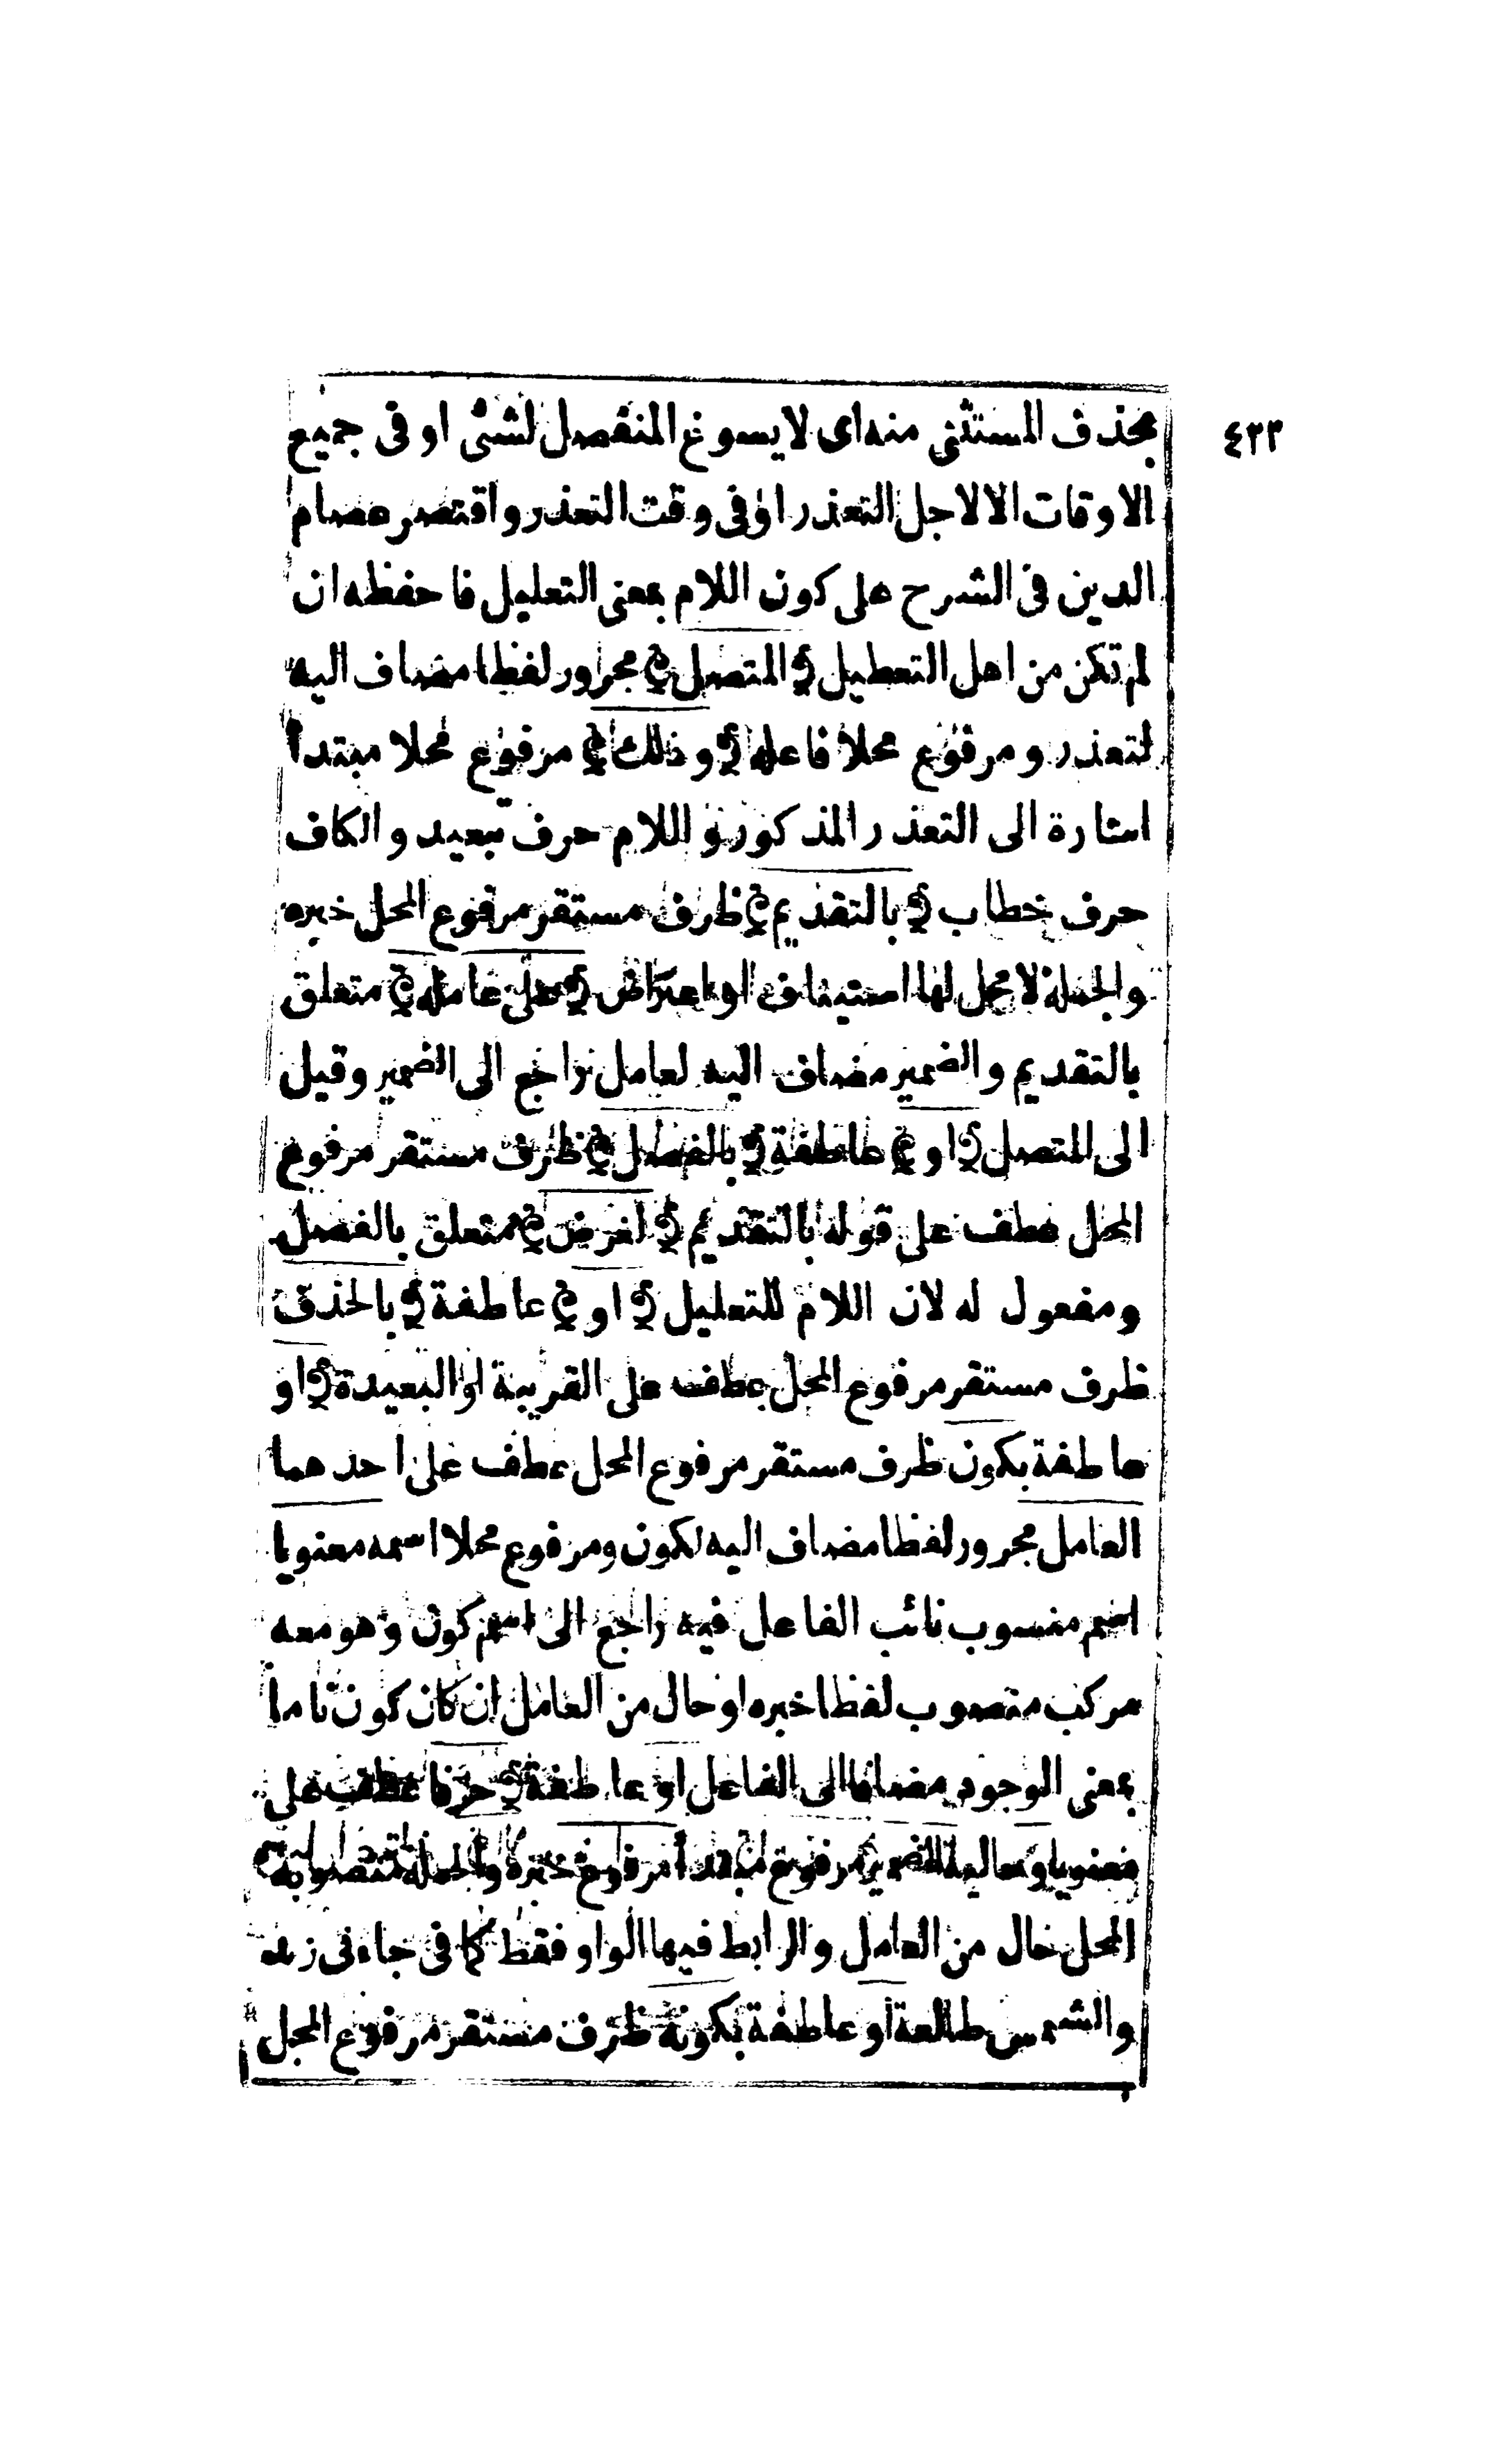 ٤٣٣
بحذف المستثنى منه اى لا يسوغ المنفصل لشئ او فى جميع
الاوقات الا لاجل التعذر او فى وقت التعذر واقتصر عصام
الدين فى الشرح على كون اللام بمعنى التعليل فاحفظه ان
لم تكن من اهل التعطيل ﴿ المتصل ﴾ مجرور لفظا مضاف اليه
لتعذر ومرفوع محلا فاعله ﴿ وذلك ﴾ مرفوع محلا مبتدأ
اشارة الى التعذر المذكور واللام حرف تبعيد والكاف
حرف خطاب ﴿ بالتقديم ﴾ ظرف مستقر مرفوع المحل خبره
والجملة لا محل لها استيناف او اعتراض ﴿ على عامله ﴾ متعلق
بالتقديم والضمير مضاف اليه لعامل راجع الى الضمير وقيل
الى المتصل ﴿ او ﴾ عاطفة ﴿ بالفصل ﴾ ظرف مستقر مرفوع
المحل عطف على قوله بالتقديم ﴿ لغرض ﴾ متعلق بالفصل
ومفعول له لان اللام للتعليل ﴿ او ﴾ عاطفة ﴿ بالحذف
ظرف مستقر مرفوع المحل عطف على القريبة او البعيدة ﴿ او
عاطفة بكون ظرف مستقر مرفوع المحل عطف على احدهما
العامل مجرور لفظا مضاف اليه لكون ومرفوع محلا اسمه معنويا
اسم منسوب نائب الفاعل فيه راجع الى اسم كون وهو معه
مركب منصوب لفظا خبره او حال من العامل ان كان كون تاما
بمعنى الوجود مضافا الى الفاعل او عاطفة ﴿ حرفا عطف على
معنويا و الضمير مرفوع مبتدأ مرفوع خبره والجملة منصوبة
المحل حال من العامل والرابط فيها الواو فقط كما فى جاءنى زيد
والشمس طالعة او عاطفة بكونه ظرف مستقر مرفوع المحل